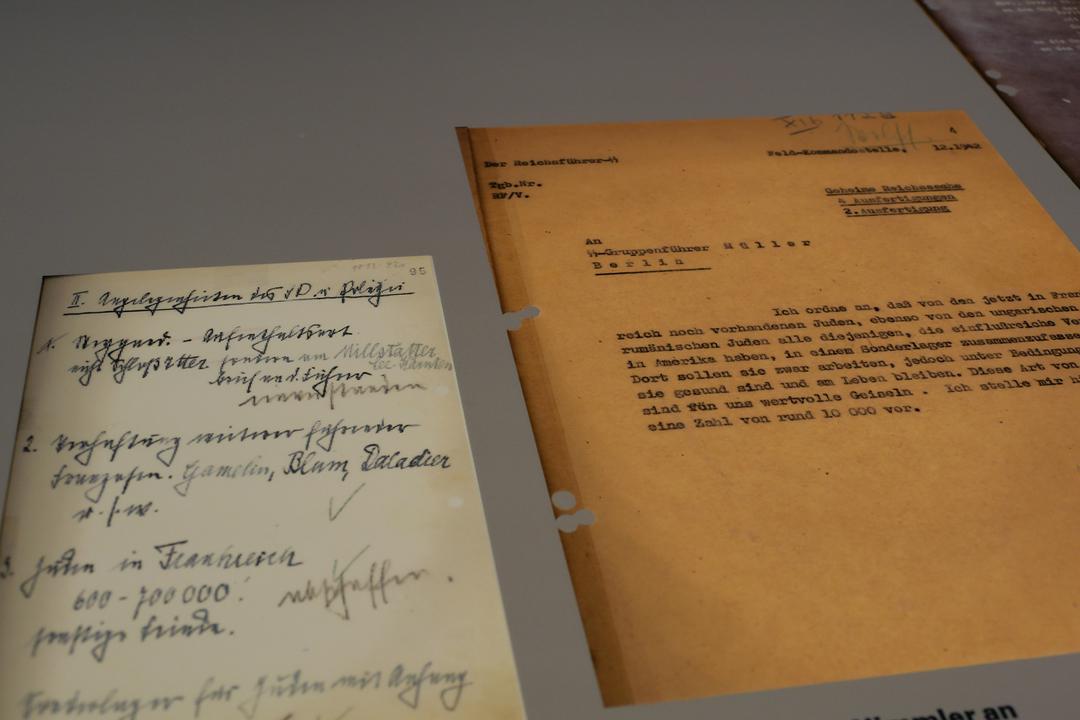 95
II. Angelegenheiten des SD. u. Polizei
1. Weygand. – Aufenthaltsort
nicht Schloß Itter sondern am Millstätter
See Kärnten
2. Verhaftung weiterer führender
Franzosen. Gamelin, Blum, Daladier
u.s.w.
3. Juden in Frankreich
600 - 700 000. abschaffen.
sonstige Feinde.
Sonderlager für Juden mit Anhang
4
Der Reichsführer-SS
Feld-Kommandostelle, 12.1942
Tgb.Nr.
RF/V.
Geheime Reichssache
4 Ausfertigungen
2. Ausfertigung
An
SS-Gruppenführer Müller
Berlin
Ich ordne an, daß von den jetzt in Fran
reich noch vorhandenen Juden, ebenso von den ungarischen
rumänischen Juden alle diejenigen, die einflußreiche Ve
in Amerika haben, in einem Sonderlager zusammenzufasse
Dort sollen sie zwar arbeiten, jedoch unter Bedingun
sie gesund sind und am Leben bleiben. Diese Art von
sind für uns wertvolle Geiseln . Ich stelle mir hi
eine Zahl von rund 10 000 vor.
mmler an